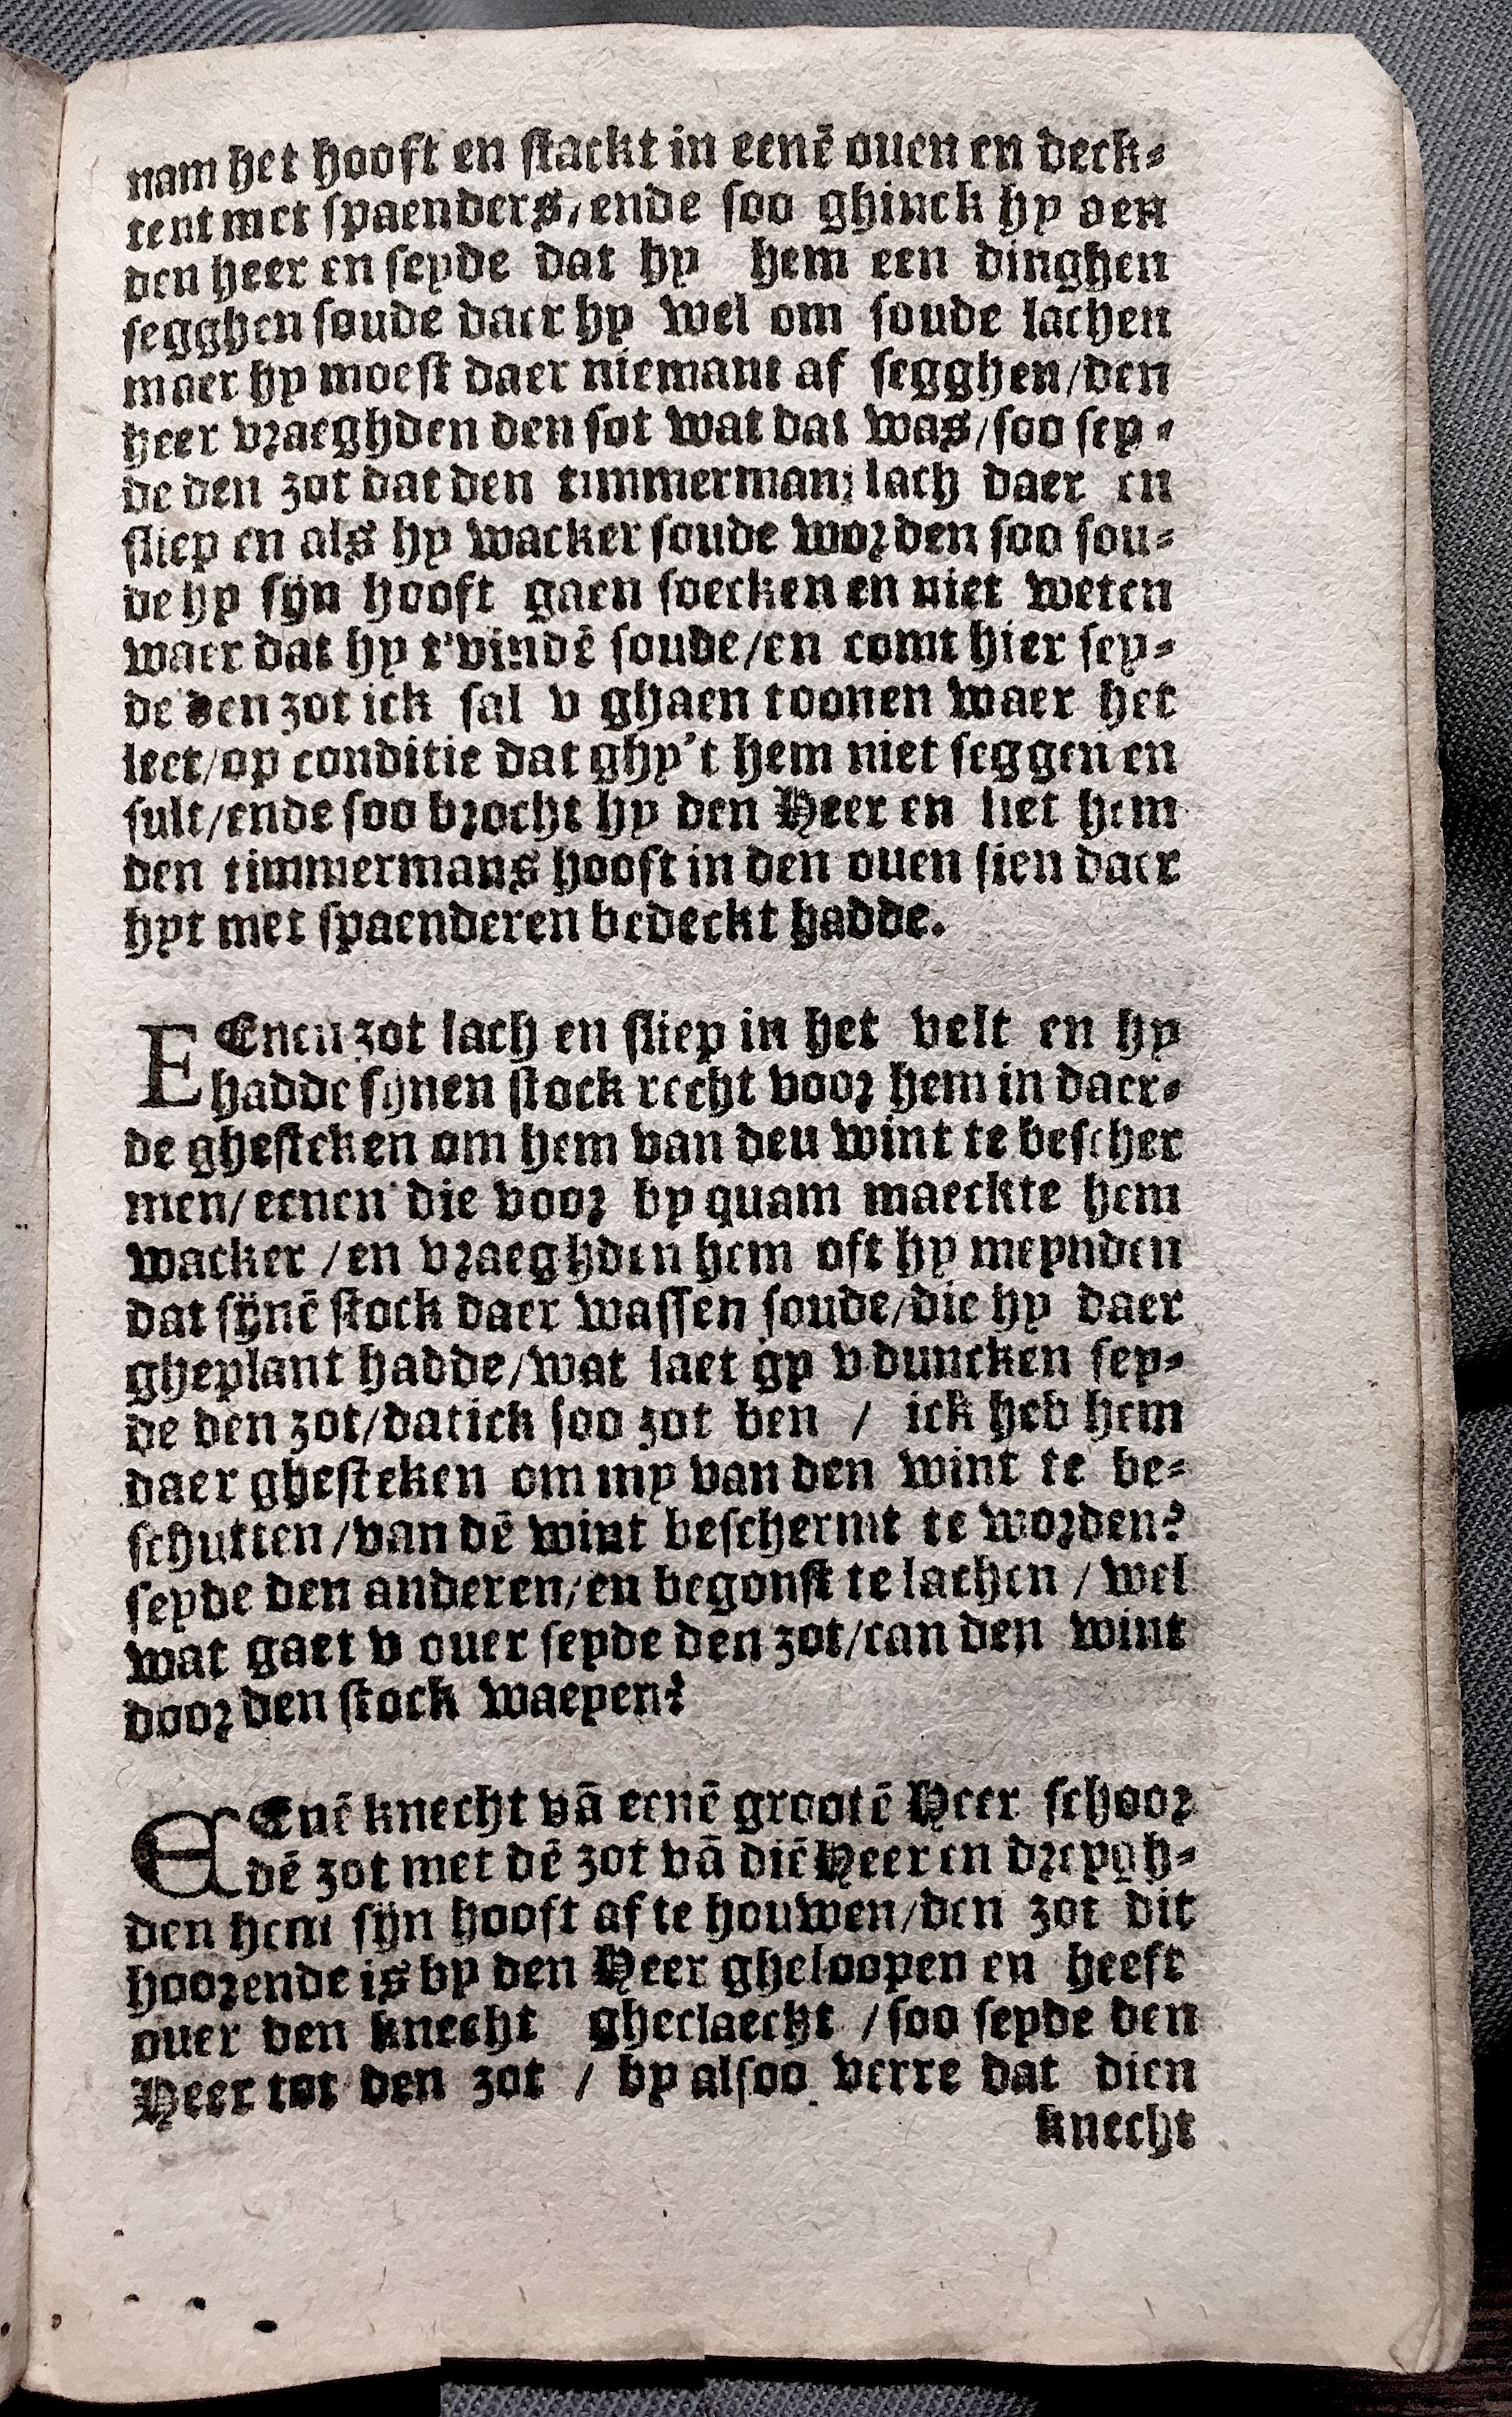 nam het hooft en stackt in eenē ouen en deck⸗
tent met spaenders, ende soo ghinck hy aen
den heer en seyde dat hy hem een dinghen
segghen soude daer hy wel om soude lachen
maer hy moest daer niemant af segghen/den
heer vraeghden den sot wat dat was/soo sey⸗
de den zot dat den timmerman; lach daer en
sliep en als hy wacker soude worden soo sou⸗
de hy sijn hooft gaen soecken en niet weten
waer dat hy t'vindē soude/en comt hier sey⸗
de den zot ick sal v ghaen toonen waer het
leet/op conditie dat ghy't hem niet seggen en
sult/ende soo brocht hy den Heer en liet hem
den timmermans hooft in den ouen sien daer
hyt met spaenderen bedeckt hadde.
EEnen zot lach en sliep in het velt en hy
hadde synen stock recht voor hem in daer⸗
de ghesteken om hem van deu wint te bescher
men/eenen die voor by quam maeckte hem
wacker /en vraeghden hem oft hy meynden
dat sijnē stock daer wassen soude/die hy daer
gheplant hadde/wat laet gy v duncken sey⸗
de den zot/dat ick soo zot ben / ick heb hem
daer ghesteken om my van den wint te be⸗
schutten/van dē wint beschermt te worden?
seyde den anderen/en begonst te lachen / wel
wat gaet v ouer seyde den zot/can den wint
door den stock waeyen?
EEnē knecht vā eenē grootē Heer schoor
dē zot met dē zot vā diē Heer en dreygh⸗
den hem sijn hooft af te houwen/den zot dit
hoorende is by den Heer gheloopen en heeft
ouer den knecht gheclaeckt /soo seyde den
Heer tot den zot / by alsoo verre dat dien
knecht